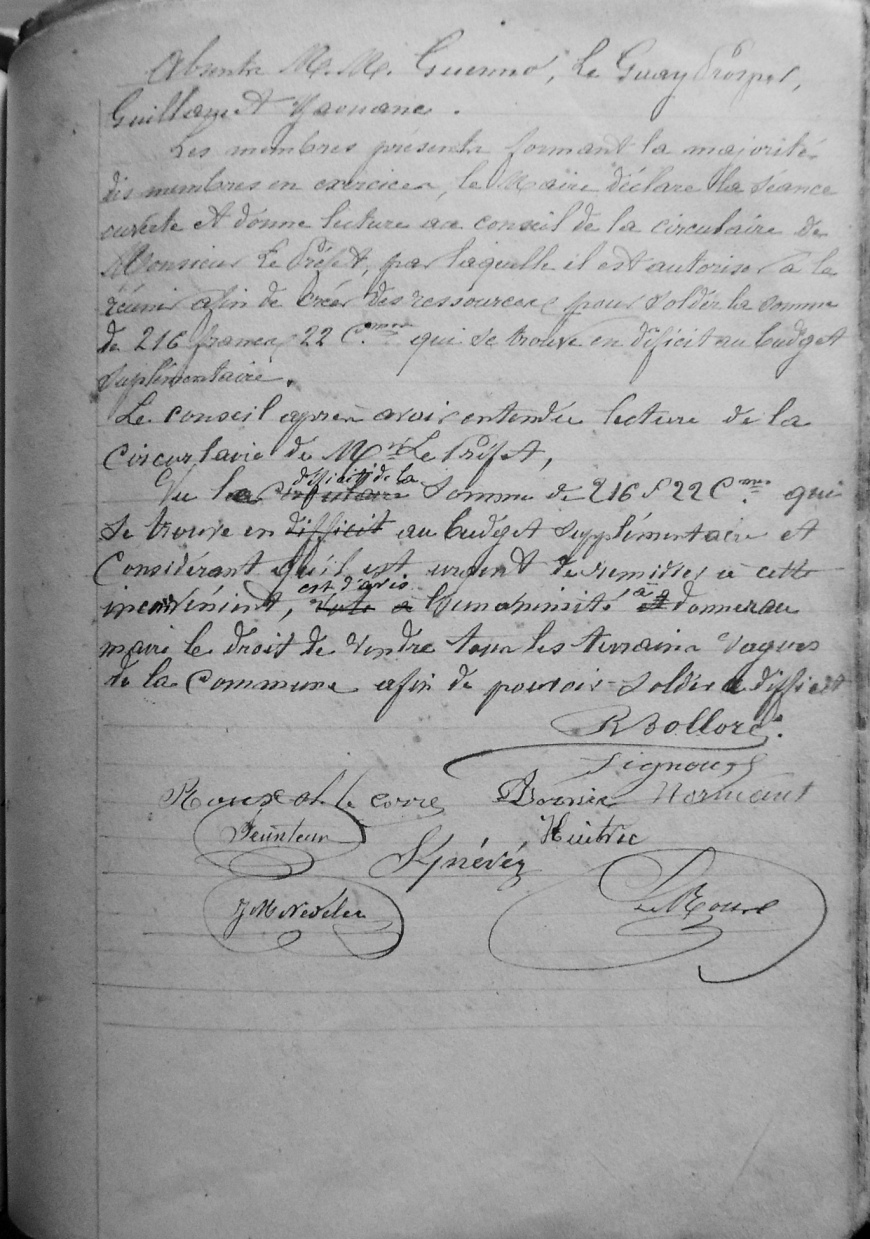 Absents M.M. Guenno, Le Guay Prosper,
Guillou et Yaouanc.
Les membres présents formant la majorité
des membres en exercices, le Maire déclare la séance
ouverte et donne lecture au conseil de la circulaire de
Monsieur Le Préfet, par laquelle il est autoriser à le
réunir afin de créer des ressources pour solder la somme
de 216 francs 22 C.mes qui se trouve en déficit au budget
suplémentaire.
Le conseil après avoir entendu lecture de la
Circurlaire de Mr Le Préfet,
déficit de la
Vu la somme de 216 f 22 Cmes qui
se trouve en difficit au budget supplémentaire et
Considérant qu'il est urgent de remédier à cette
est d'avis
inconvénient, vote a l'unanimité à donner au
maire le droit de vendre tous les terrains vagues
de la Commune afin de pouvoir solder le difficit
R Bolloré.
Signour
Roux ol. le corre Bornic Normant
Feunteun Huitric
Kgnévéz
J M Nédélec Le Roux